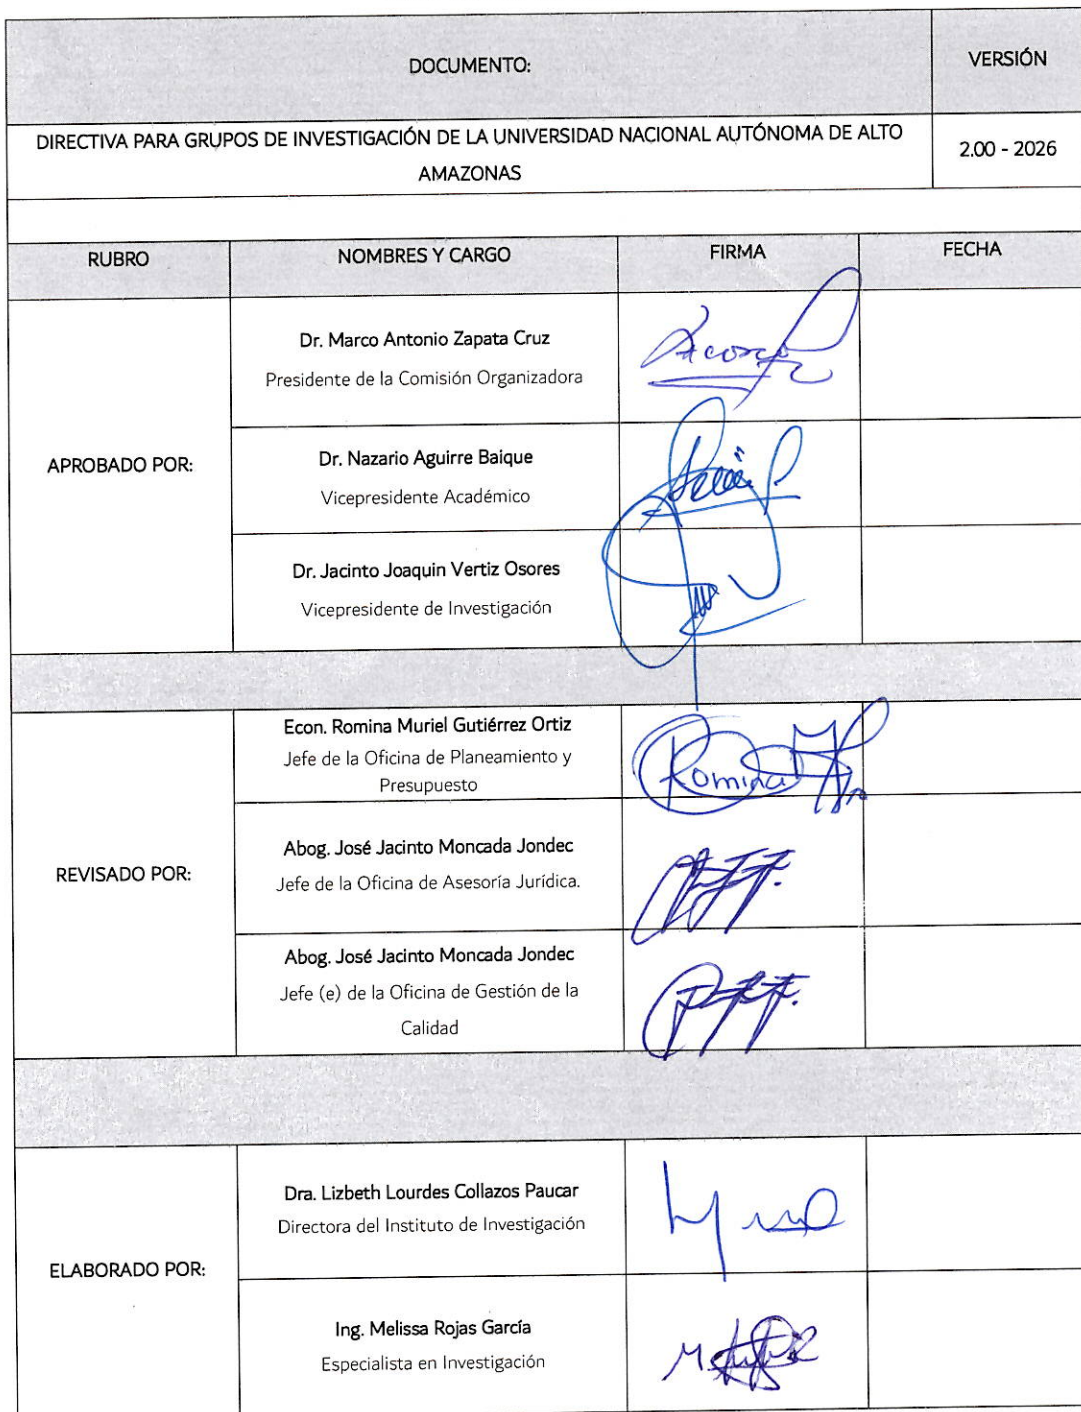 DOCUMENTO:
VERSIÓN
DIRECTIVA PARA GRUPOS DE INVESTIGACIÓN DE LA UNIVERSIDAD NACIONAL AUTÓNOMA DE ALTO
AMAZONAS
2.00 - 2026
RUBRO
NOMBRES Y CARGO
FIRMA
FECHA
APROBADO POR:
Dr. Marco Antonio Zapata Cruz
Presidente de la Comisión Organizadora
Dr. Nazario Aguirre Baique
Vicepresidente Académico
Dr. Jacinto Joaquin Vertiz Osores
Vicepresidente de Investigación
REVISADO POR:
Econ. Romina Muriel Gutiérrez Ortiz
Jefe de la Oficina de Planeamiento y
Presupuesto
Romina
Abog. José Jacinto Moncada Jondec
Jefe de la Oficina de Asesoría Jurídica.
Abog. José Jacinto Moncada Jondec
Jefe (e) de la Oficina de Gestión de la
Calidad
ELABORADO POR:
Dra. Lizbeth Lourdes Collazos Paucar
Directora del Instituto de Investigación
Ing. Melissa Rojas García
Especialista en Investigación